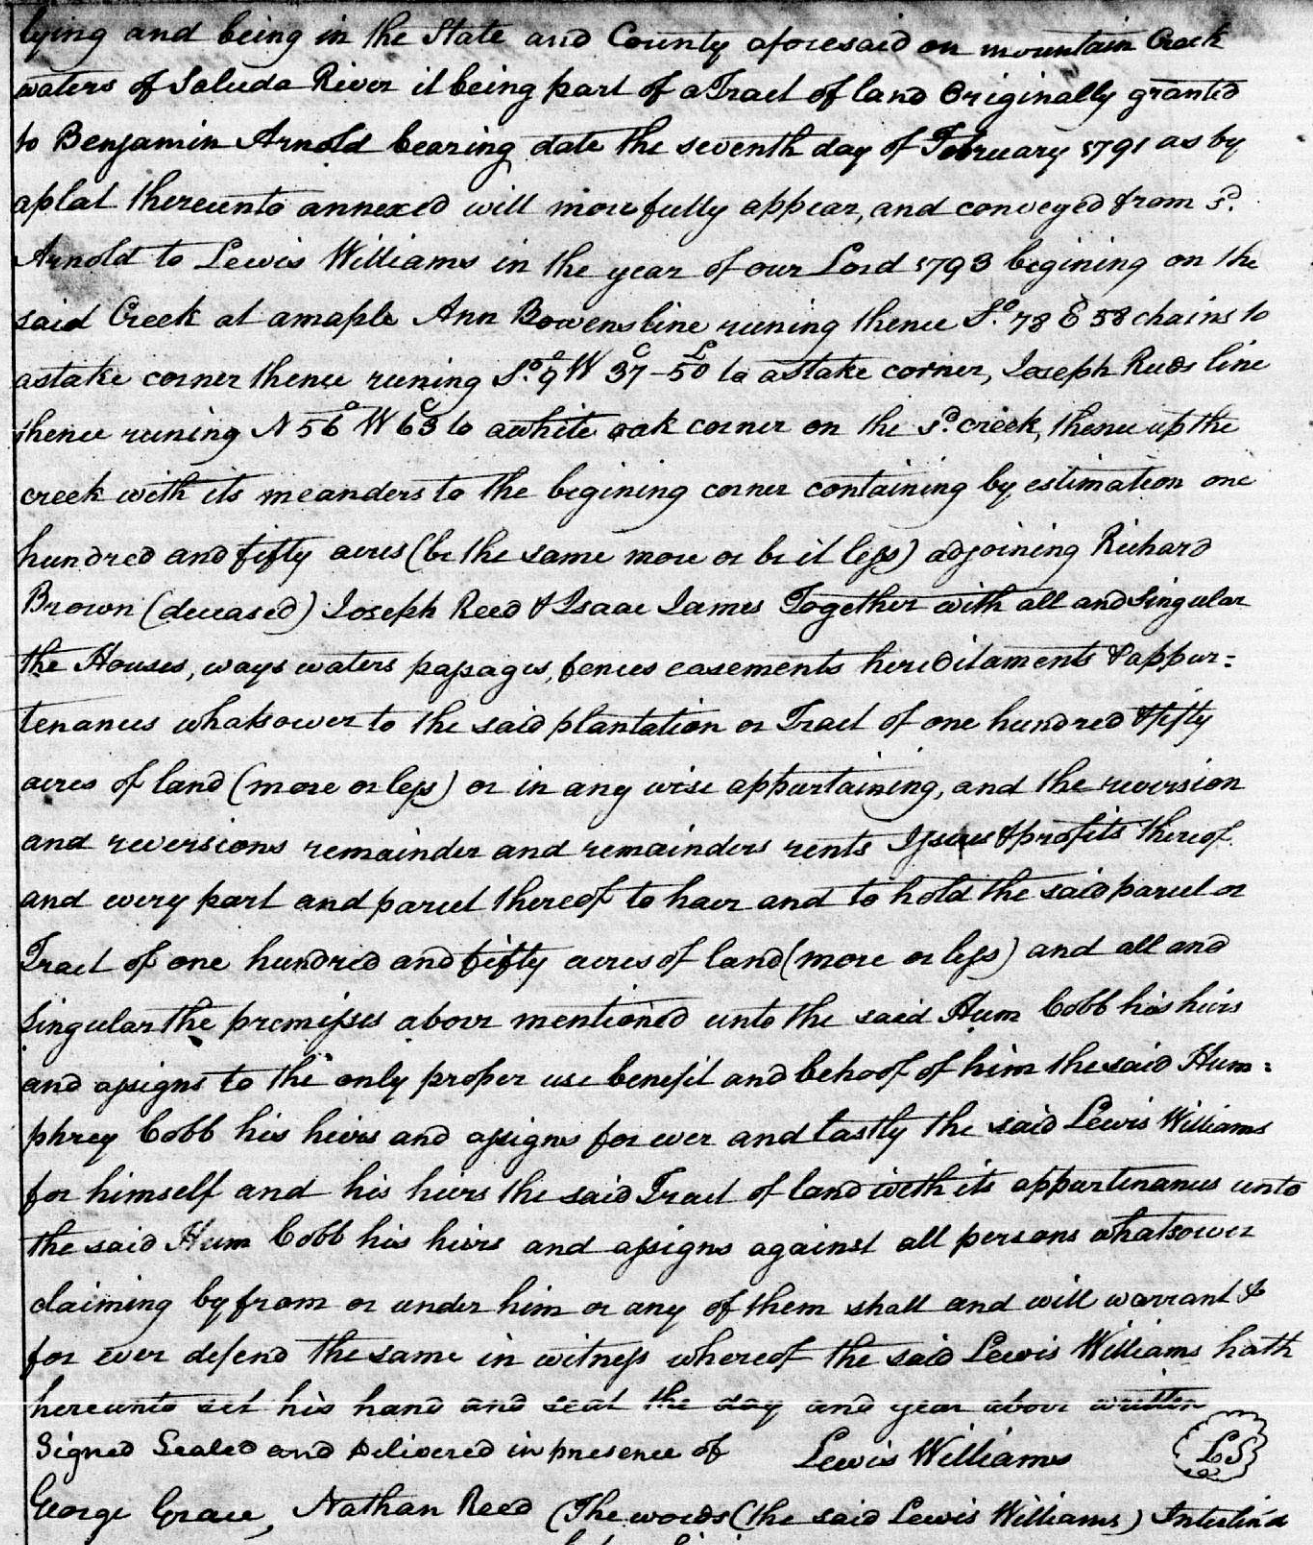 lying and being in the State and County aforesaid on mountain Creek
waters of Saluda River it being part of a Tract of land Originally granted
to Benjamin Arnold bearing date the seventh day of February 1791 as by
a plat thereunto annexed will more fully appear, and conveyed from sd.
Arnold to Lewis Williams in the year of our Lord 1793 begining on the
said Creek at a maple Ann Bowens line runing thence So. 78 E 58 chains to
a stake corner thence runing So. 9° W 37C-50L to a stake corner, Joseph Reeds line
thence runing N 56° W 63C to a white oak corner on the sd. creek, thence up the
creek with its meanders to the begining corner containing by estimation one
hundred and fifty acres (be the same more or be it less) adjoining Richard
Brown (deceased) Joseph Reed & Isaac James Together with all and Singular
the Houses, ways waters passages, fences easements hereditaments & appur=
tenances whatsoever to the said plantation or Tract of one hundred & fifty
acres of land (more or less) or in any wise appurtaining, and the reversion
and reversions remainder and remainders rents Issues & profits thereof
and every part and parcel thereof to have and to hold the said parcel or
Tract of one hundred and fifty acres of land (more or less) and all and
Singular the premises above mentioned unto the said Hum Cobb his heirs
and assigns to the only proper use benefit and behoof of him the said Hum=
phrey Cobb his heirs and assigns for ever and lastly the said Lewis Williams
for himself and his heirs the said Tract of land with its appurtenances unto
the said Hum Cobb his heirs and assigns against all persons whatsoever
claiming by from or under him or any of them shall and will warrant &
for ever defend the same in witness whereof the said Lewis Williams hath
hereunto set his hand and seal the day and year above written
Signed Sealed and Delivered in presence of Lewis Williams LS
George Grace, Nathan Reed (The words (the said Lewis Williams) Interlin'd